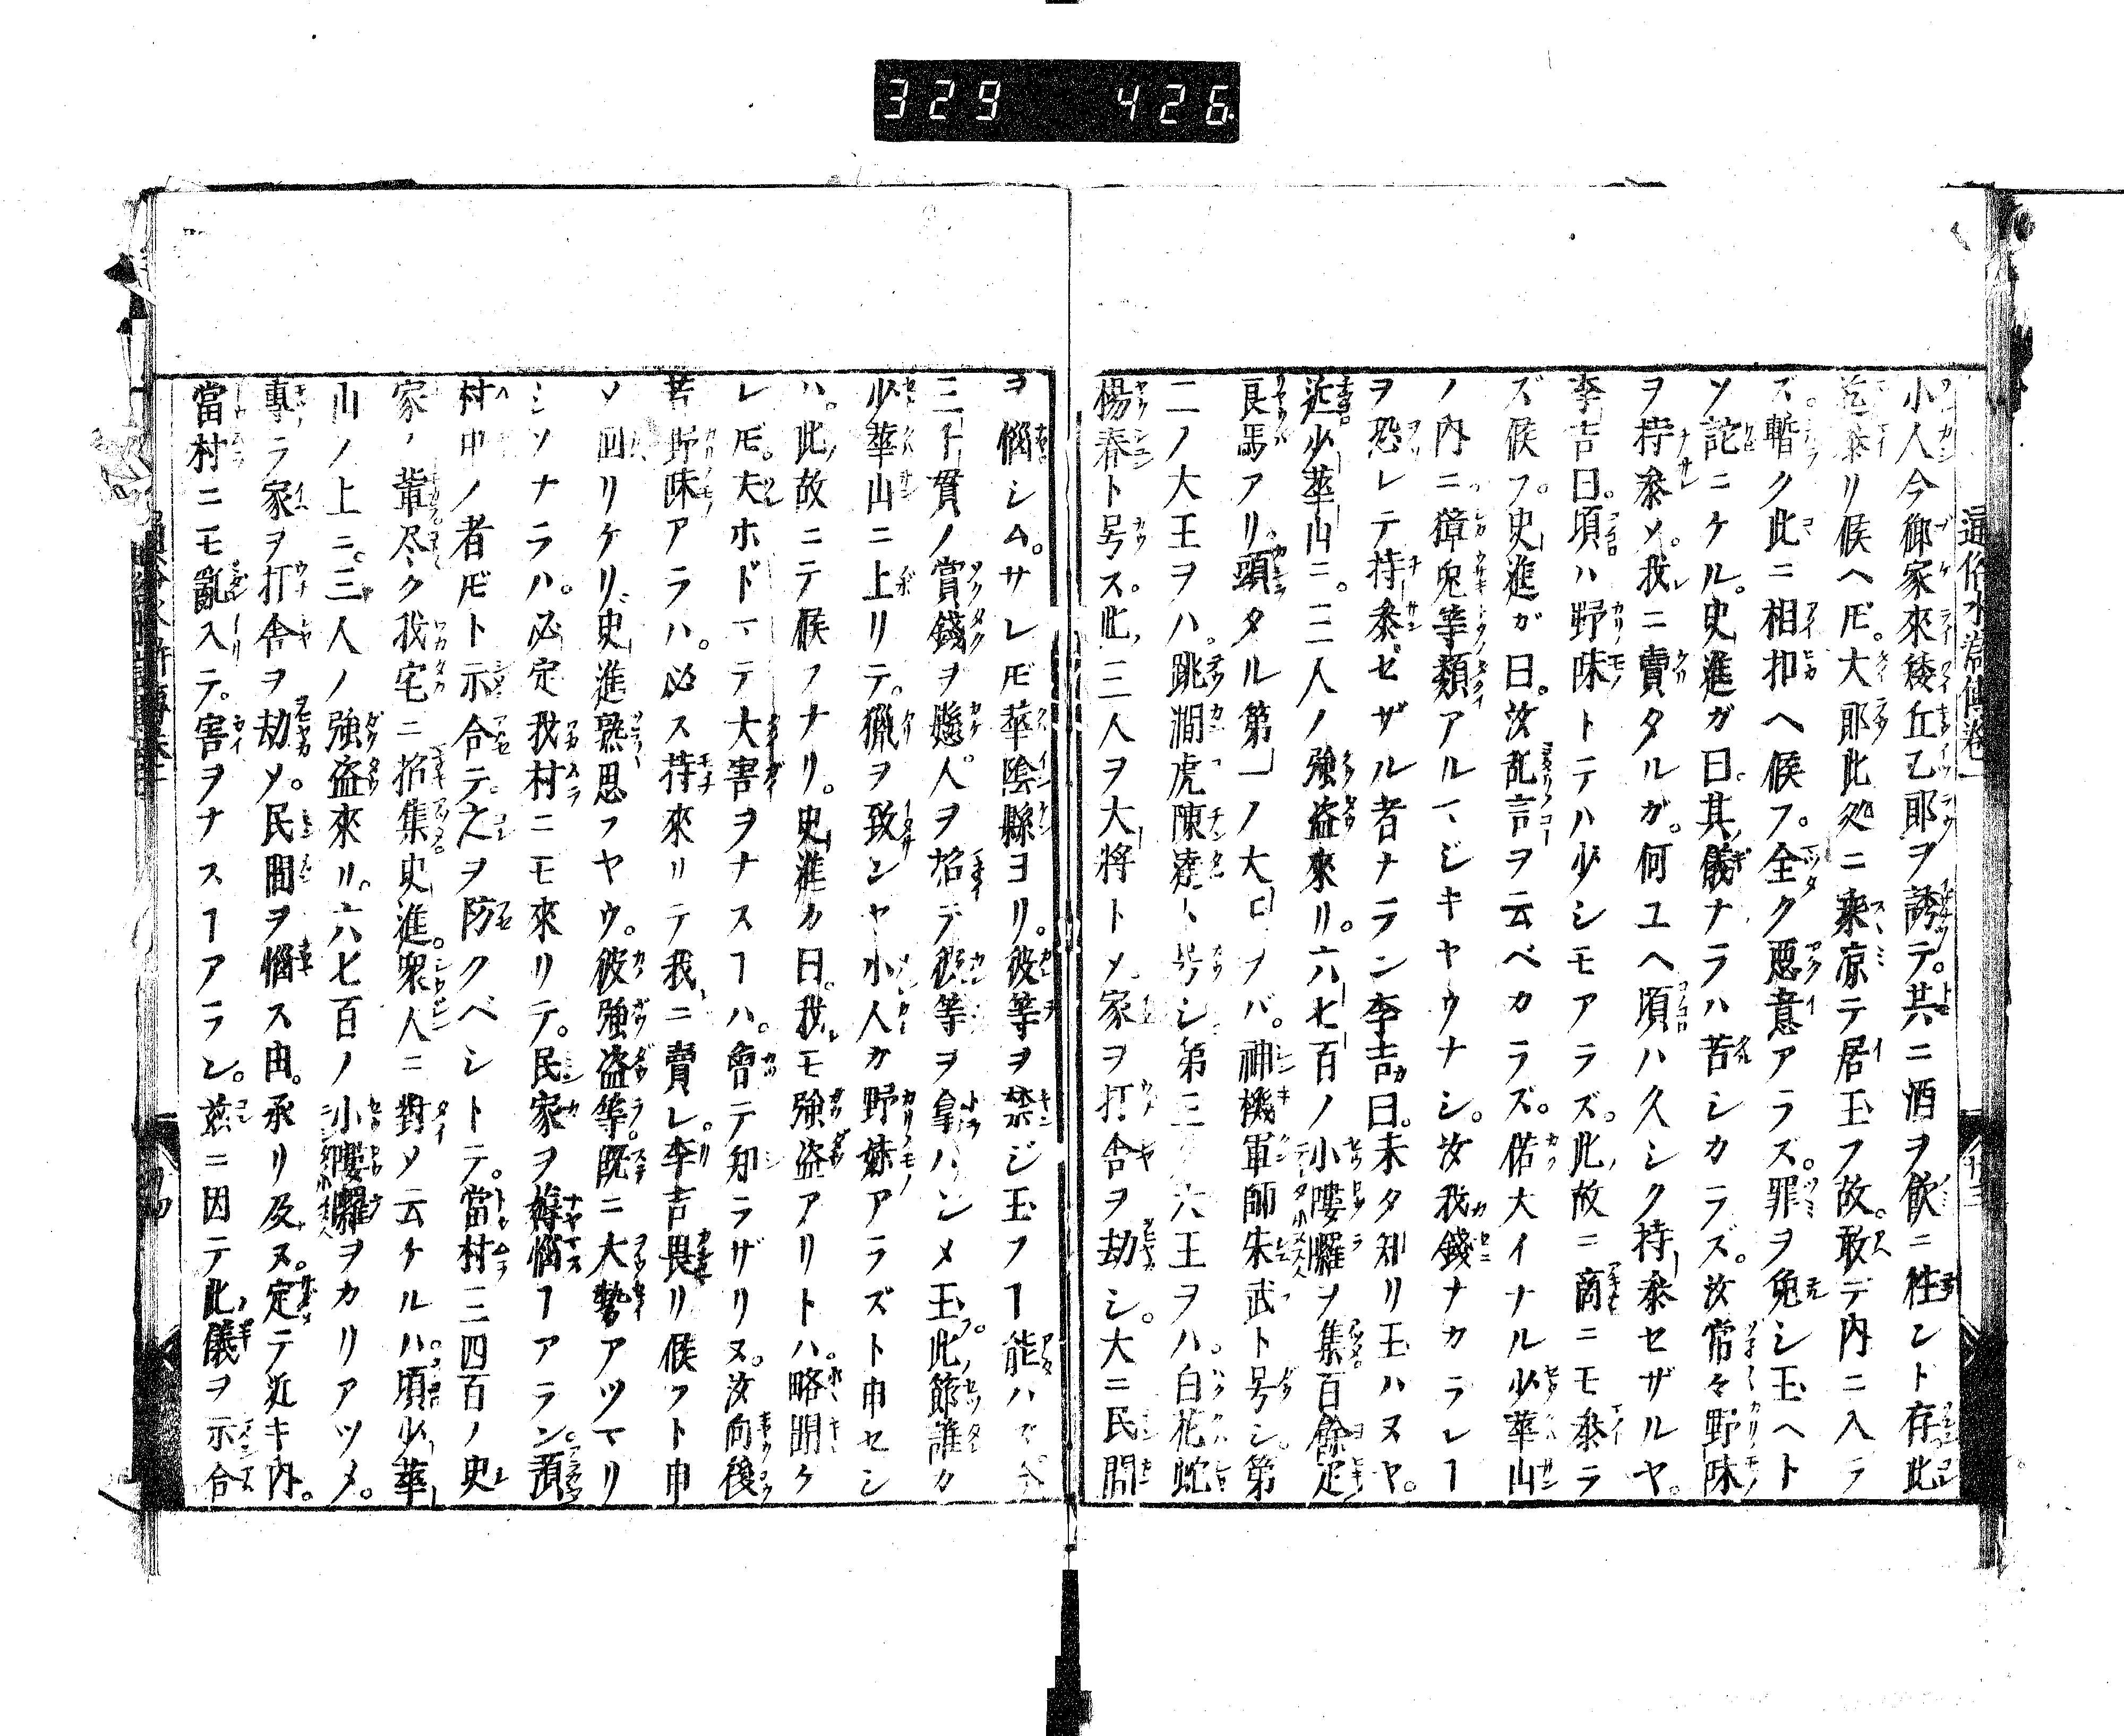 329 426
通俗水滸傳卷一
小人今御家來矮丘乙郎ヲ誘テ。共ニ酒ヲ飲ニ徃ント存此
迄參リ候ヘ𪜈。大郎此処ニ乘凉テ居玉フ故。敢テ内ニ入ラ
ズ。暫ク此ニ相扣ヘ候フ。全ク悪意アラズ。罪ヲ免シ玉ヘト
ソ詫ニケル。史進ガ曰。其儀ナラハ苦シカラズ。汝常々野味
ヲ持參メ。我ニ賣タルガ。何ユヘ頃ハ久シク持參セザルヤ。
李吉曰。頃ハ野味トテハ少シモアラズ。此故ニ商ニモ參ラ
ズ候フ。史進ガ曰。汝乱言ヲ云ベカラズ。偌大イナル少華山
ノ内ニ獐兎等類アルマジキヤウナシ。汝我錢ナカラレヿ
ヲ恐レテ持參セザル者ナラン李吉カ曰。未タ知リ玉ハヌヤ。
近少華山ニ。三人ノ強盗來リ。六七百ノ小嘍囉ヲ集百餘疋
良馬アリ。頭タル第一ノ大王ヲバ。神機軍師朱武ト号シ。第
二ノ大王ヲハ。跳澗虎陳達ト号シ第三ノ大王ヲハ。白花蛇
楊春ト号ス。此三人ヲ大将トメ。家ヲ打舎ヲ劫シ。大ニ民間
ヲ惱シム。サレ𪜈華陰縣ヨリ。彼等ヲ禁ジ玉フヿ能ハズ。今
三千貫ノ賞錢ヲ懸。人ヲ招テ彼等ヲ拿ハンメ玉フ。此節誰カ
少華山ニ上リテ。獵ヲ致ンヤ小人カ野味アラズト申セシ
ハ。此故ニテ候フナリ。史進カ曰。我モ強盗アリトハ。略聞ケ
レ𪜈。夫ホドマテ大害ヲナスヿハ。曾テ知ラザリヌ。汝向後
若野味アラハ。必ス持來リテ我ニ賣レ。李吉畏リ候フト申
ソ回リケリ。史進熟思フヤウ。彼強盗等。既ニ大勢アツマリ
シソナラハ。必定我村ニモ來リテ。民家ヲ蓐惱ヿアラン。預
村中ノ者𪜈ト示合テ。之ヲ防クベシトテ。當村三四百ノ史
家ノ輩尽ク我宅ニ招集史進。衆人ニ對メ云ケルハ。頃少華
山ノ上ニ。三人ノ強盗來リ。六七百ノ小嘍囉ヲカリアツメ。
專ラ家ヲ打舎ヲ劫メ。民間ヲ惱ス由。承リ及ヌ。定テ近キ内。
當村ニモ亂入テ。害ヲナスヿアラン。茲ニ因テ此儀ヲ示合